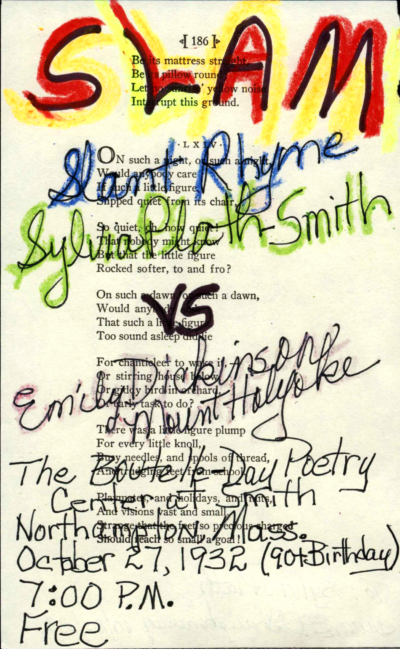 [ 186 ]
SLAM
Be its mattress straight,
Be its pillow round;
Let no sunrise' yellow noise
Interrupt this ground.
LXIV
ON such a night, or such a night,
Would anybody care
If such a little figure
Slipped quiet from its chair,
Slant Rhyme
So quiet, oh, how quiet!
That nobody might know
But that the little figure
Rocked softer, to and fro?
Sylvia Plath-Smith
On such a dawn, or such a dawn,
Would
That such a little figure
Too sound asleep did lie
VS
For chanticleer to wake it,
Or stirring house below,
Or giddy bird in orchard,
Or early task to do?
Emily Dickinson
Mount Holyoke
There was a little figure plump
For every little knoll,
Busy needles, and spools of thread,
And trudging feet from school.
Playmates, and holidays, and nuts,
And visions vast and small.
Strange that the feet so precious charged
Should reach so small a goal!
The Boutelle-Day Poetry
Center at Smith
Northampton, Mass.
October 27, 1932 (90th Birthday)
7:00 P.M.
Free